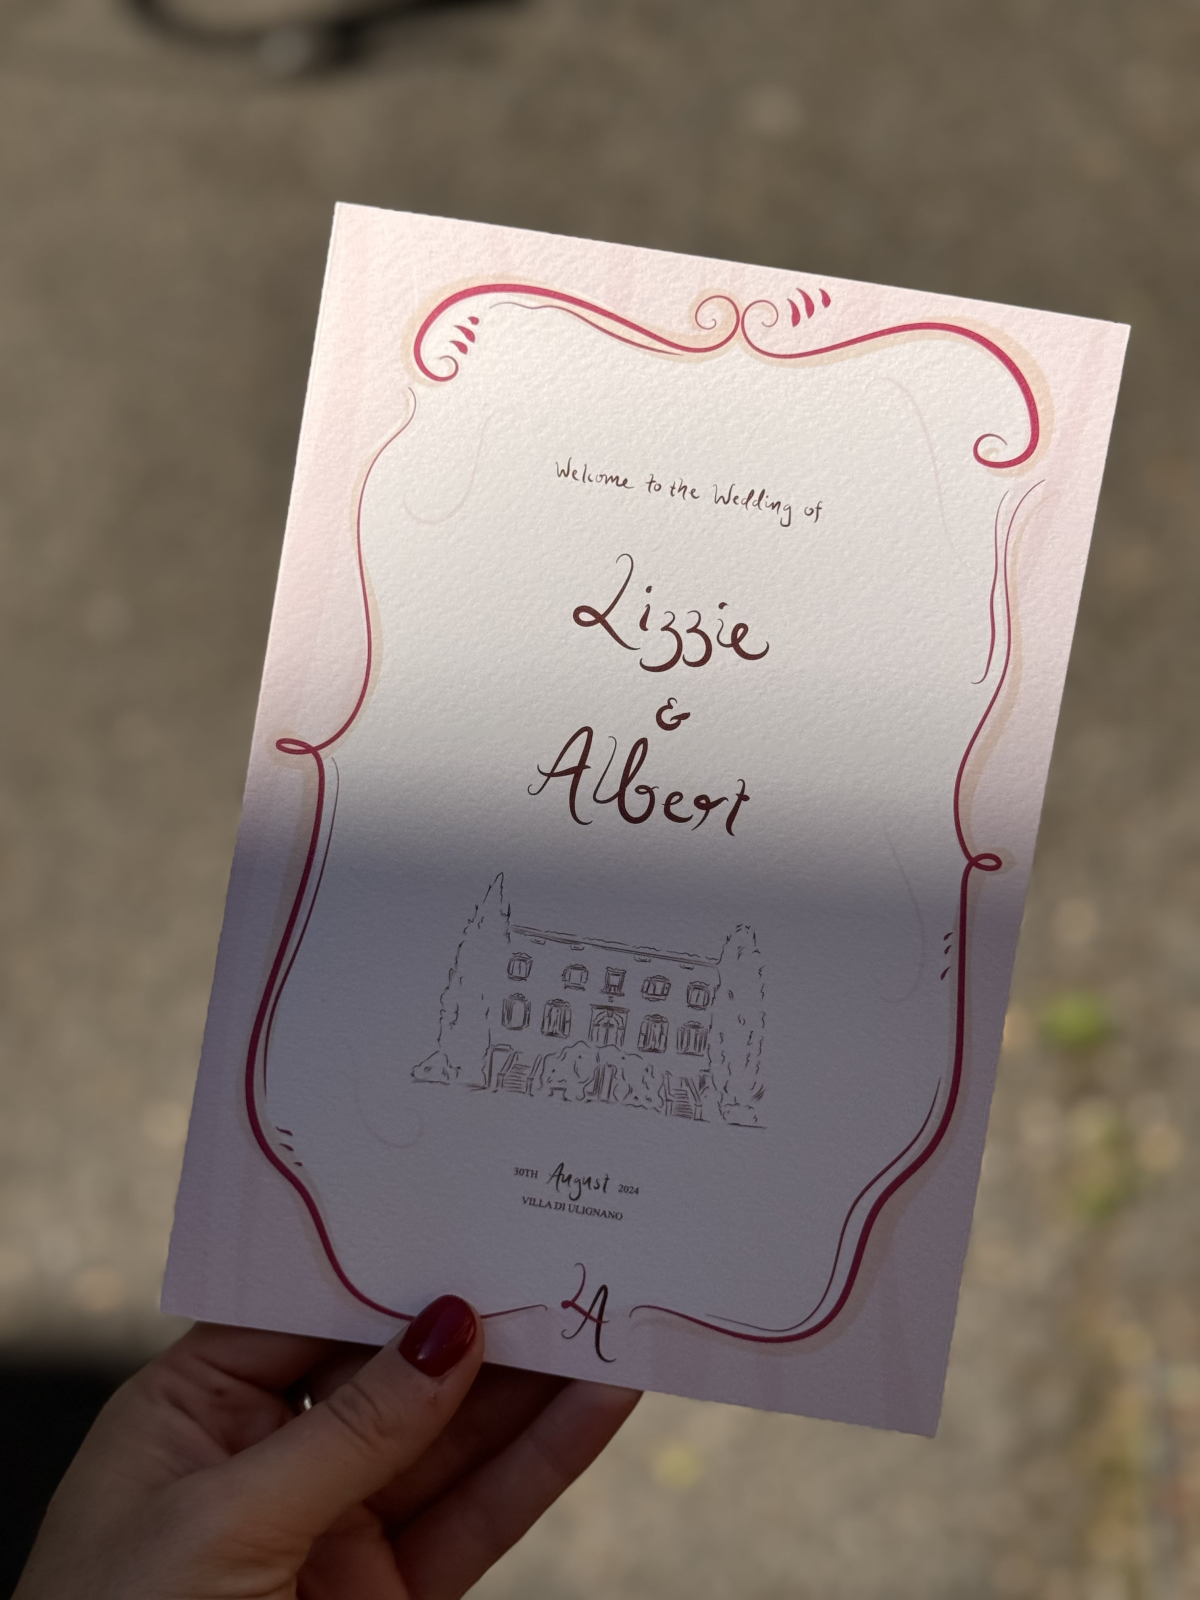 Welcome to the Wedding of
Lizzie
&
Albert
30TH August 2024
VILLA DI ULIGNANO
LA